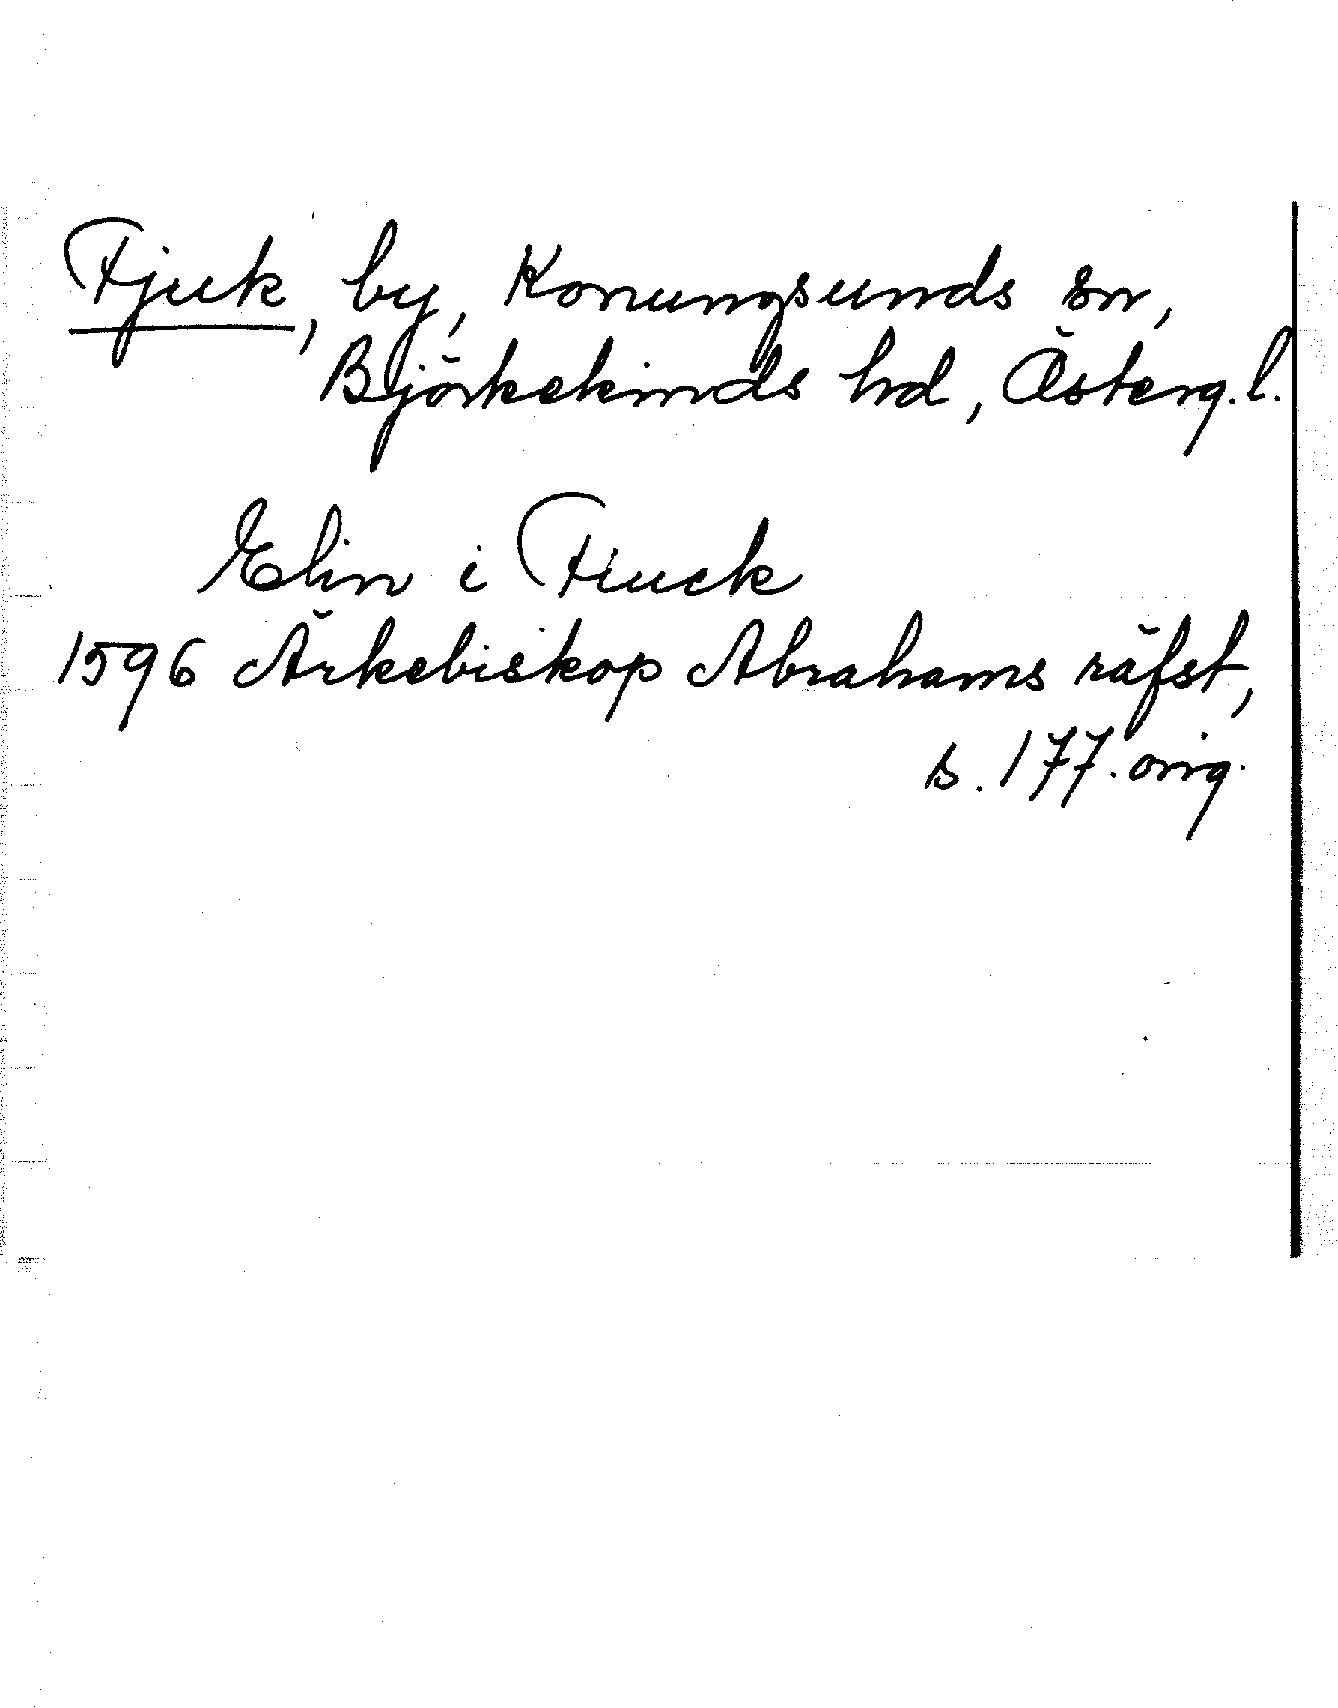 Fjuk, by, Konungsunds sn,
Björkekinds hd, Österg.l.
Elin i Fiuck
1596 Ärkebiskop Abrahams räfst,
s. 177. orig.